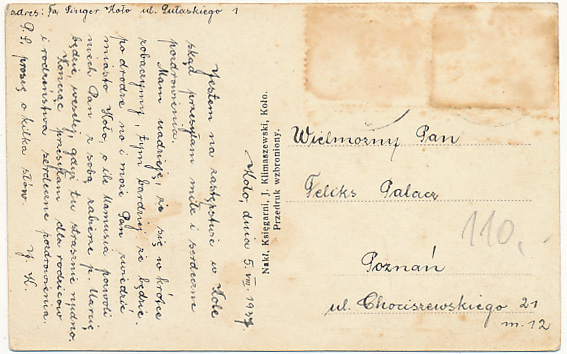 adres: Fa Singer Koło ul. Pułaskiego 1
Koło, dnia 5. VIII. 1937
Jestem na zastępstwie w Kole
skąd przesyłam miłe i serdeczne
pozdrowienia.
Mam nadzieję, że się w krótce
zobaczymy, tym bardziej że będzie
po drodze no i może Pan zwiedzić
miasto Koło, o ile Mamusia pozwoli
niech Pan z sobą zabierze p. Marysię
będzie weselej, gdyż tu strasznie nudno.
Kończąc przesyłam dla rodziców
i rodzeństwa serdeczne pozdrowienia.
P.S. proszę o kilka słów.
Nakł. Księgarni, J. Klimaszewski, Koło.
Przedruk wzbroniony.
Wielmożny Pan
Feliks Palacz
Poznań
ul. Chociszewskiego 21
m. 12
110,-